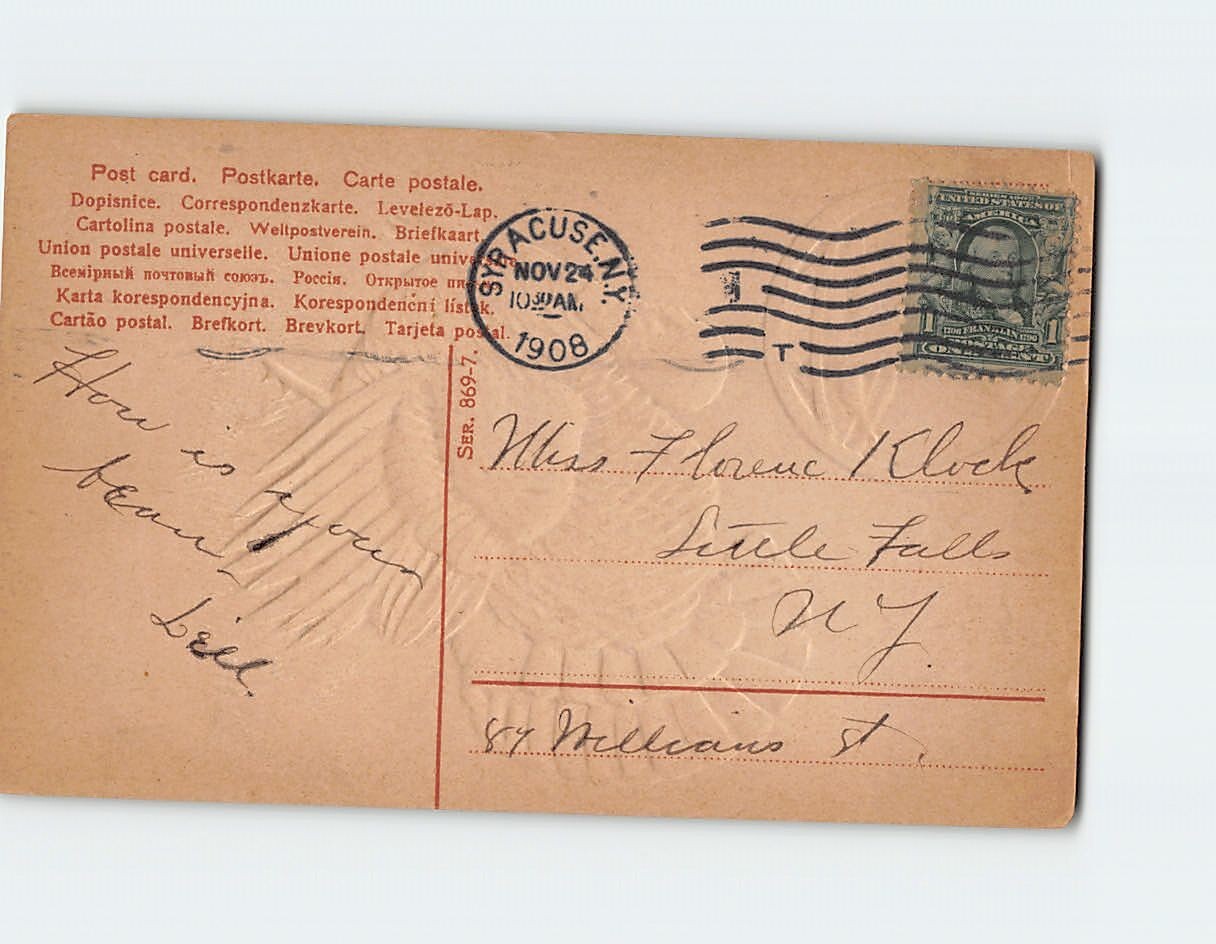 Post card. Postkarte. Carte postale.
Dopisnice. Correspondenzkarte. Levelező-Lap.
Cartolina postale. Weltpostverein. Briefkaart.
Union postale universelle. Unione postale unive
Всемірный почтовый союзъ. Россія. Открытое
Karta korespondencyjna. Korespondenční lístek.
Cartão postal. Brefkort. Brevkort. Tarjeta postal.
SER. 869-7.
SYRACUSE, N.Y.
NOV 24
10 30 AM
1908
T
UNITED STATES OF
AMERICA
1 1706 FRANKLIN 1790 1
POSTAGE
ONE CENT
How is your
beau
Lill.
Miss Florenc Klock
Little Falls
N Y.
87 Willians St.